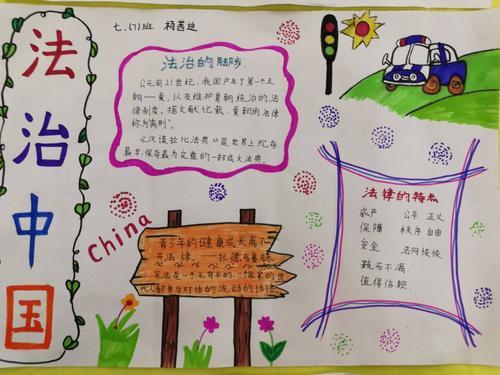 七.(7)班 柯茜迪
法治中国
China
法治的脚步.
公元前21世纪,我国产生了第一个王
朝——夏,以及维护夏朝统治的法
律制度,据文献记载,夏朝的法律
称为"禹刑".
《汉谟拉比法典》是世界上现存
最早,保存最为完整的一部成文法典.
青少年的健康成长离不
开法律,
法律的特点
威严 公平 正义
保障 秩序 自由
安全 法网恢恢
疏而不漏.
值得信赖.